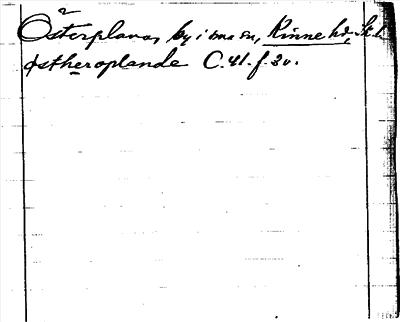 Österplana, by i dna sn, Kinne hd, Sk. l.
Østheroplande C. 41. f. 30.